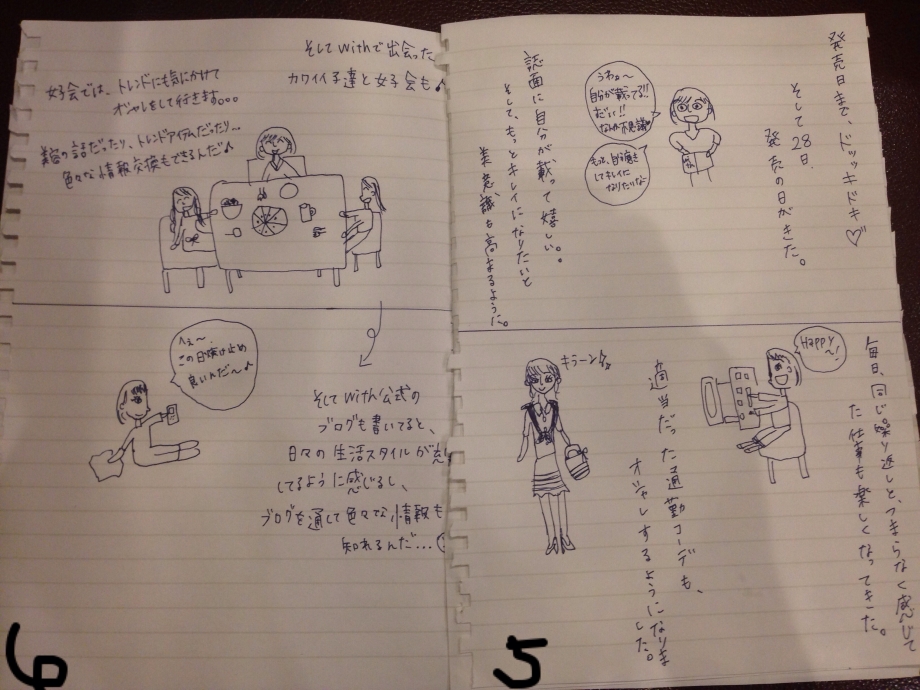 発売日まで、ドッッキドキ♡
そして28日、
発売の日がきた。
うわぁ〜
自分が載ってる!!
すごい!!
なんか不思議
もっと、自分磨き
してキレイに
なりたいな
誌面に自分が載って嬉しい。。
そして、もっとキレイになりたいと
美意識も高まるように。
毎日、同じ繰り返しと、つまらなく感じて
た仕事も楽しくなってきた。
Happy
〜!
適当だった通勤コーデも、
オシャレするようになりました。
キラーン☆
5
そしてwithで出会った
カワイイ子達と女子会も♪
女子会では、トレンドにも気にかけて
オシャレをして行きます。。。
美容の話だったり、トレンドアイテムだったり…
色々な情報交換もできるんだ♪
へぇ〜
この日焼け止め
良いんだ〜♪
そしてwith公式の
ブログも書いてると、
日々の生活スタイルが充
してるように感じるし、
ブログを通して色々な情報も
知れるんだ…
6